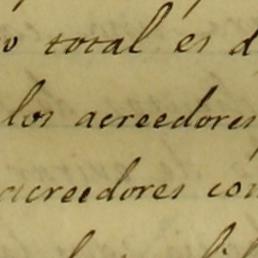 total es d
los acreedores
acreedores con